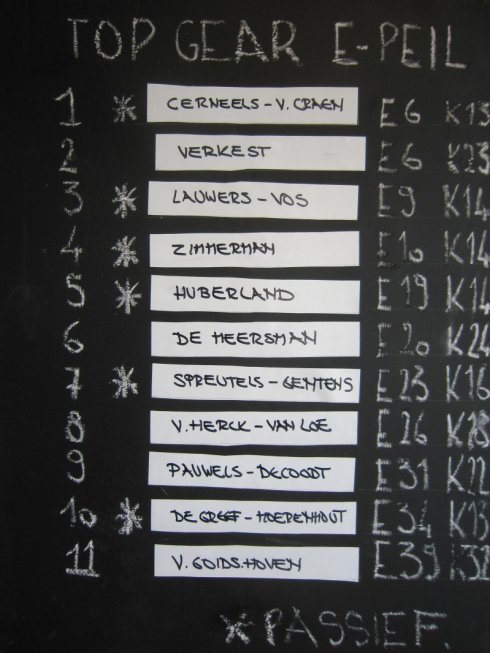 TOP GEAR E-PEIL
1 * CERNEELS - V. CRAEN E6 K15
2 VERKEST E6 K23
3 * LAUWERS - VOS E9 K14
4 * ZIMMERMAN E10 K14
5 * HUBERLAND E19 K14
6 DE MEERSMAN E20 K24
7 * SPREUTELS - GENTENS E23 K16
8 V. HERCK - VAN LOE E26 K18
9 PAUWELS - DECOODT E31 K22
10 * DE GREEF - MOEDENHOUT E34 K13
11 V. GOIDS.HOVEN E39 K32
* PASSIEF.